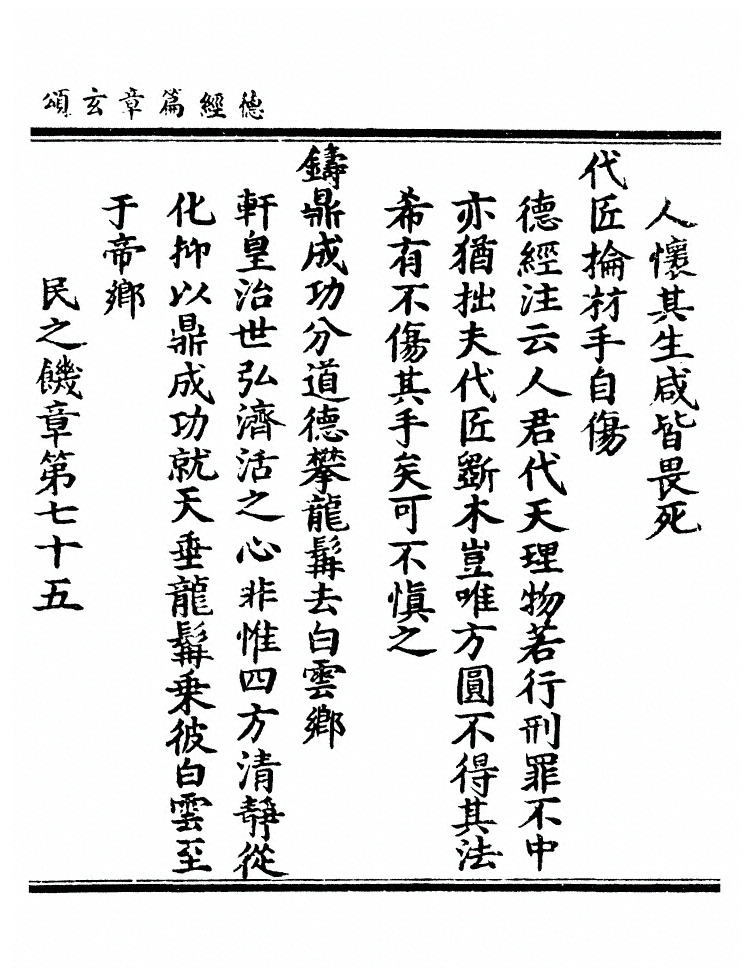 德經篇章玄頌
人懷其生咸皆畏死
代匠掄材手自傷
德經注云人君代天理物若行刑罪不中
亦猶拙夫代匠斵木豈唯方圓不得其法
希有不傷其手矣可不愼之
鑄鼎成功分道德攀龍髯去白雲鄉
軒皇治世弘濟活之心非惟四方清靜從
化抑以鼎成功就天垂龍髯乘彼白雲至
于帝鄉
民之饑章第七十五